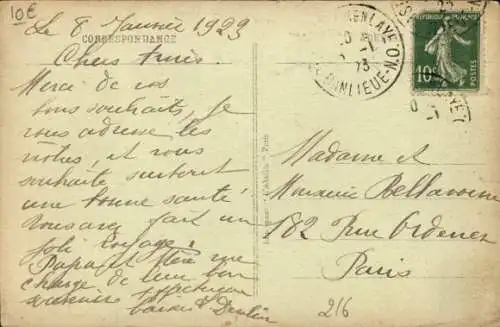 10€
Le 8 Janvier 1923
CORRESPONDANCE
Chers Amis.
Merci de vos
bons souhaits, je
vous adresse les
nôtres, et vous
souhaite surtout
une bonne santé
Vous avez fait un
joli voyage.
Papa et Mère me
charge de leur bon
souvenir affectueux
baisers
Madame et
Monsieur
182 Rue Ordener
Paris
216
REPUBLIQUE FRANÇAISE
10
POSTES